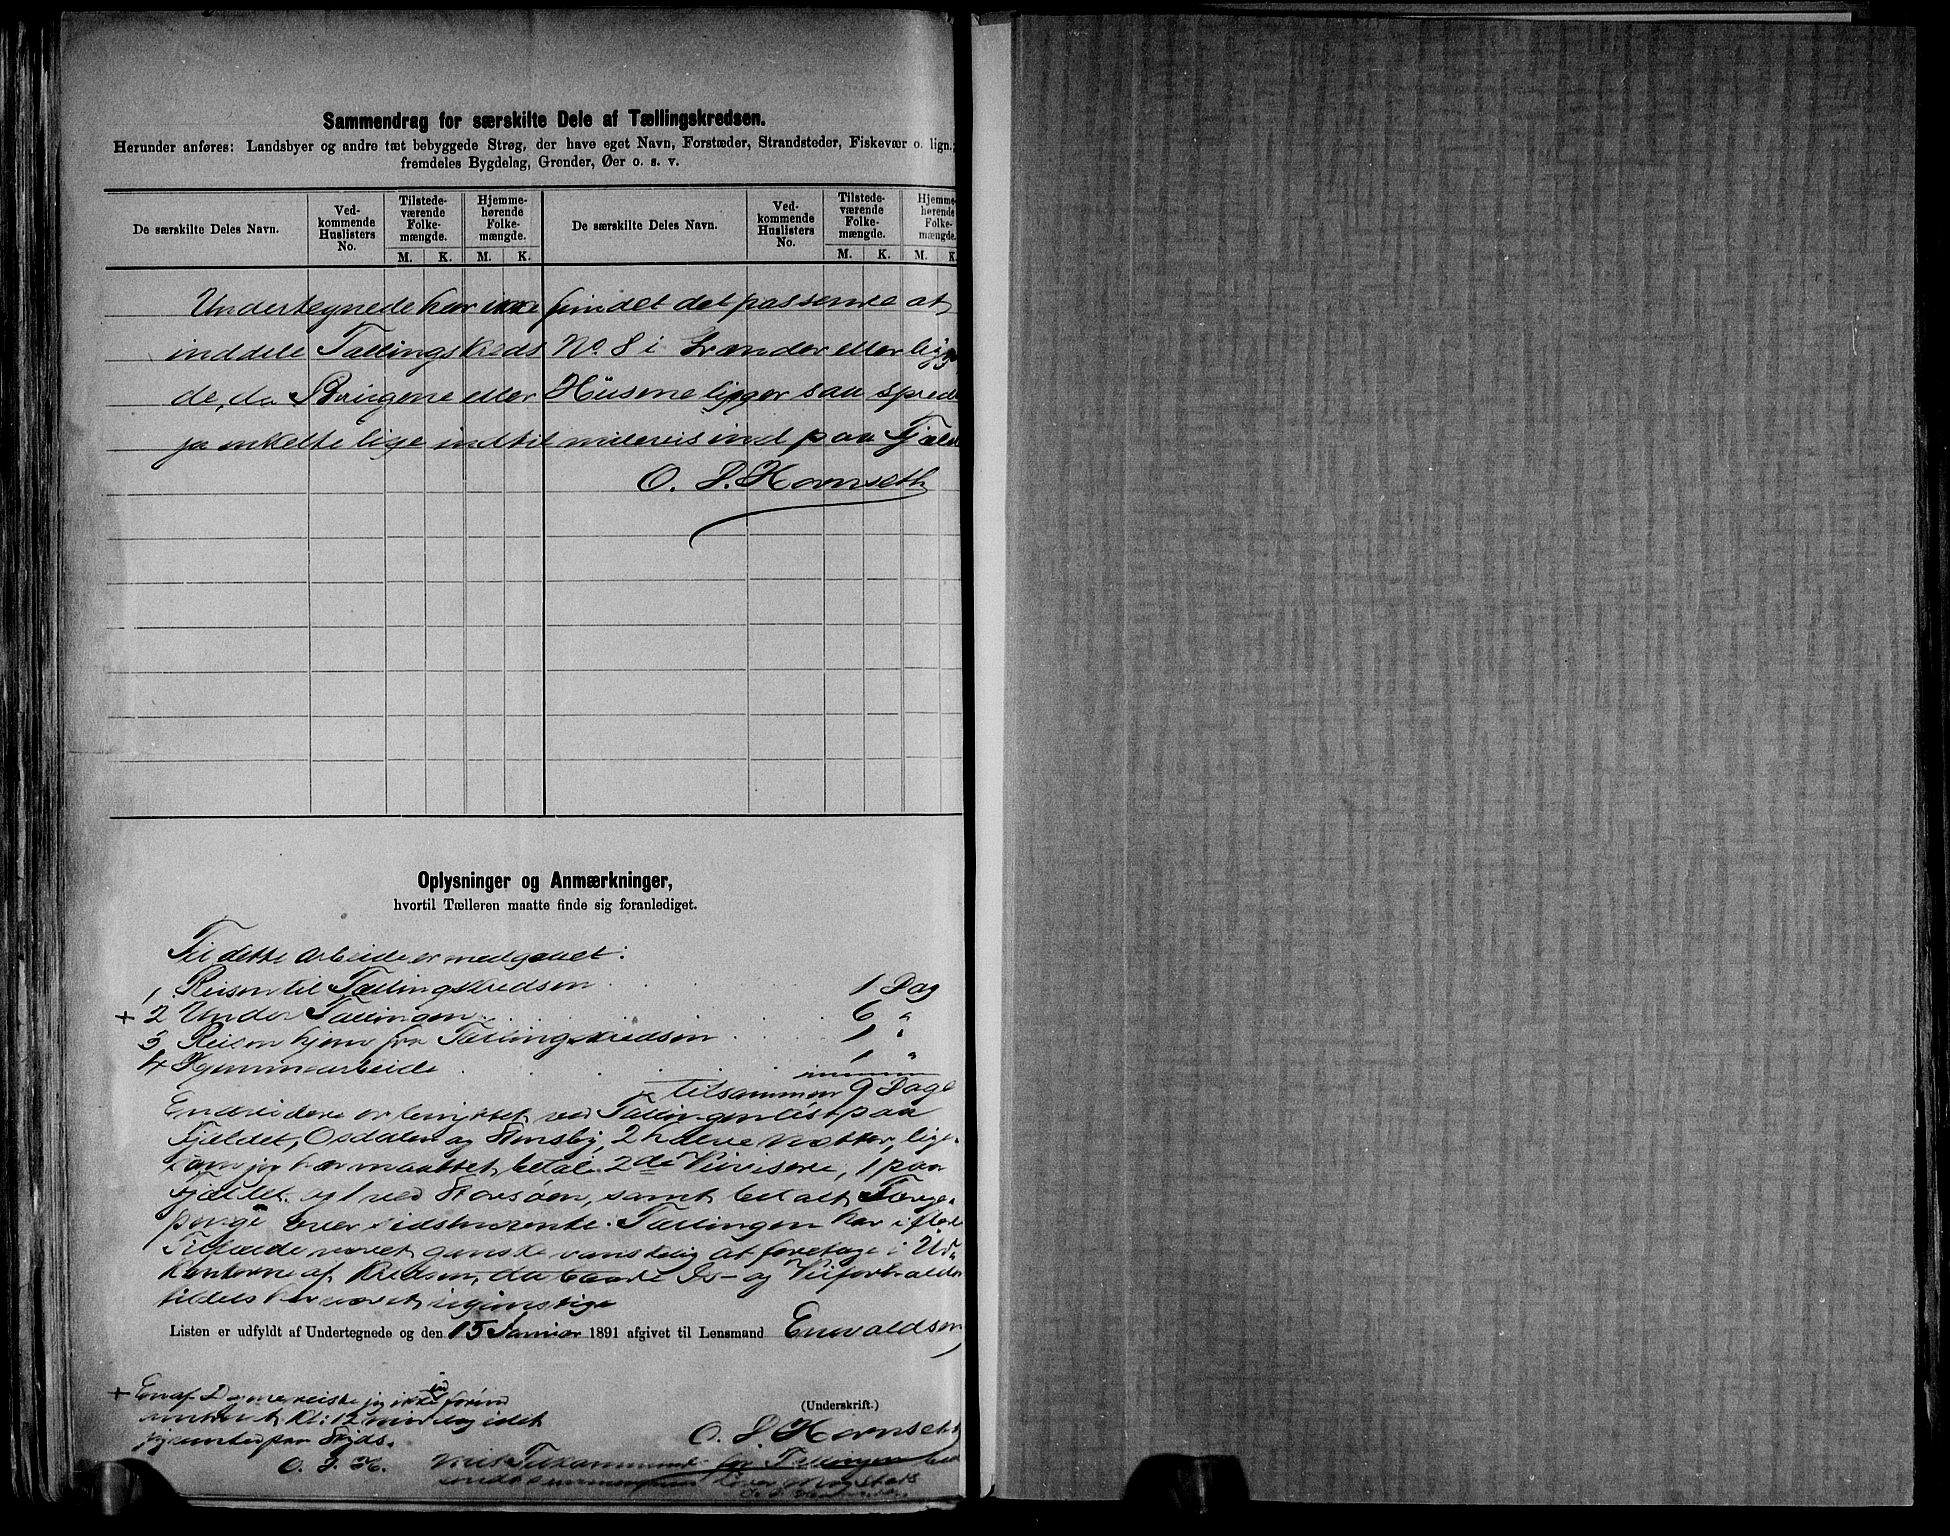 Sammendrag for særskilte Dele af Tællingskredsen.
Herunder anføres: Landsbyer og andre tæt bebyggede Strøg, der have eget Navn, Forstæder, Strandsteder, Fiskevær o. lign.;
fremdeles Bygdelag, Grender, Øer o. s. v.
De særskilte Deles Navn.
Ved-
kommende
Huslisters
No.
Tilstede-
værende
Folke-
mængde.
M. K.
Hjemme-
hørende
Folke-
mængde.
M. K.
De særskilte Deles Navn.
Ved-
kommende
Huslisters
No.
Tilstede-
værende
Folke-
mængde.
M. K.
Hjemme-
hørende
Folke-
mængde.
M. K.
Undertegnede har ikke fundet det passende at
inddele Tællingskreds No. 8 i Grender eller lig
de, da Brugene eller Husene ligger saa spred
ja enkelte lige indtil milevis ind paa Fjæld
O. J. Hornseth
Oplysninger og Anmærkninger,
hvortil Tælleren maatte finde sig foranlediget.
Til dette Arbeide er medgaaet:
1 Reisen til Tællingskredsen 1 Dag
+ 2 Under Tællingen 6 "
3 Reisen hjem fra Tællingskredsen 1 "
4 Hjemmearbeide 1 "
tilsammen 9 Dage
Endvidere er benyttet ved Tællingen paa
Fjeldet, Osdalen og 2 halve Nætter, lige-
som jeg har maattet betale 2de Veivisere, 1 paa
Fjeldet og 1 ved Storsøen, samt betalt Færge-
penge over sidstnævnte. Tællingen har i flere
Tilfælde været ganske vanskelig at foretage i Ud-
kanterne af Kredsen, da baade Is- og Veiforholde
tildels har været ugunstige
Listen er udfyldt af Undertegnede og den 15 Januar 1891 afgivet til Lensmand Enwaldsen
+ En af Dagene reiste jeg ikke ind
Kl: 12 middag idet
jeg ventet paa Skyds.
O. J. H.
(Underskrift.)
O. J. Hornseth
for Tællingen